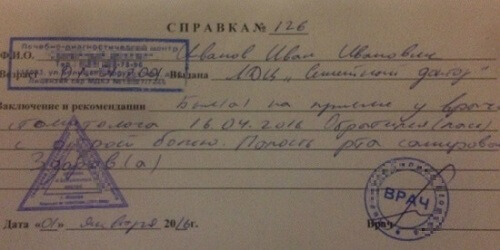 СПРАВКА № 126
Лечебно-диагностический центр
Ф.И.О. Иванов Иван Иванович
Выдана ЛДЦ „Семейный доктор"
Заключение и рекомендации Был(а) на приеме у врача
стоматолога 16.04.2016 Обратился(лась)
с острой болью. Полость рта санирована
Здоров(а)
ВРАЧ
Дата «01» января 2016г. Врач